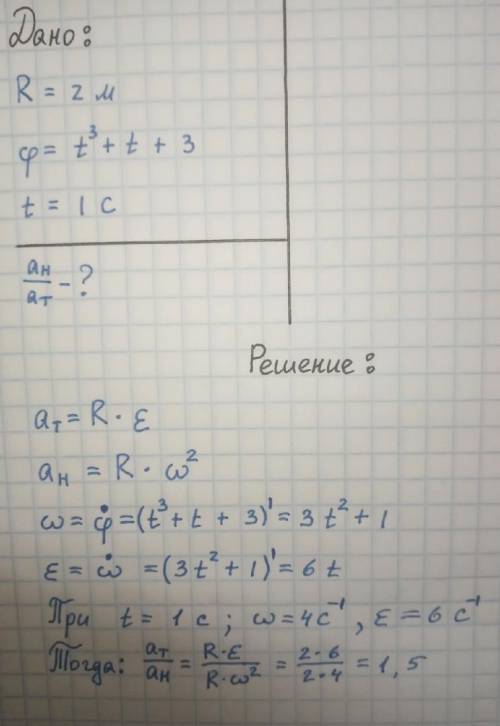 Дано:
R = 2 м
φ = t³ + t + 3
t = 1 с
aн/aт - ?
Решение:
aт = R · ε
aн = R · ω²
ω = φ̇ = (t³ + t + 3)' = 3t² + 1
ε = ω̇ = (3t² + 1)' = 6t
При t = 1 с; ω = 4с⁻¹, ε = 6 с⁻¹
Тогда: aт/aн = R·ε/R·ω² = 2·6/2·4 = 1,5